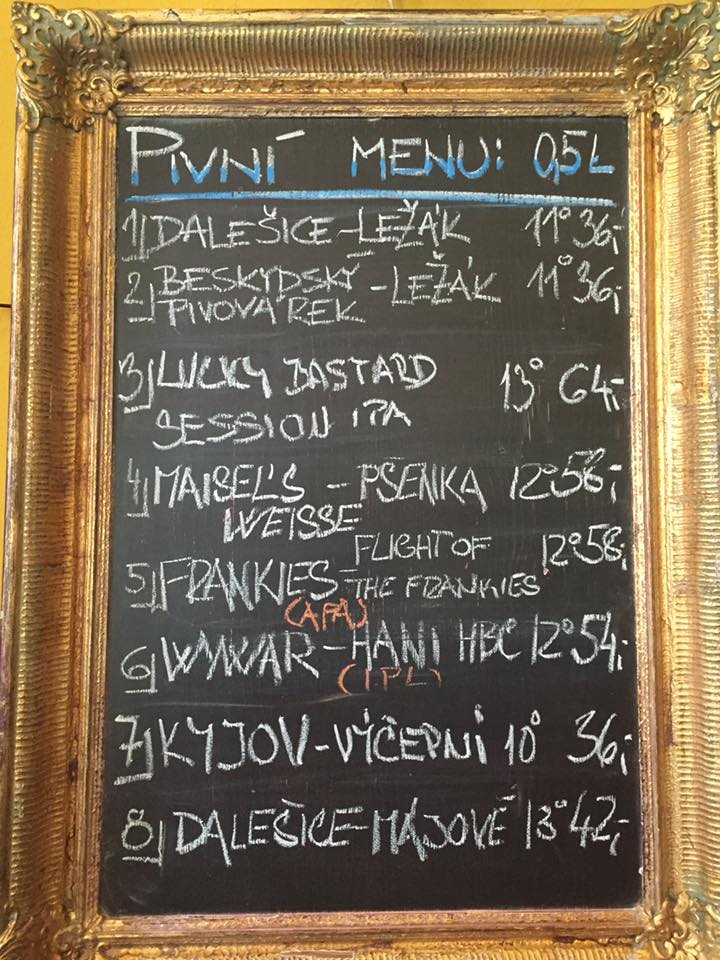 PIVNÍ MENU: 0,5L
1) DALEŠICE-LEŽÁK 11° 36,-
2) BESKYDSKÝ PIVOVÁREK - LEŽÁK 11° 36,-
3) LUCKY BASTARD 13° 64,-
SESSION IPA
4) MAISEL'S - PŠENKA 12° 58,-
WEISSE
5) FRANKIES - FLIGHT OF THE FRANKIES 12° 58,-
(APA)
6) - HANI HBC 12° 54,-
(IPL)
7) KYJOV-VÝČEPNÍ 10° 36,-
8) DALEŠICE-MÁJOVÉ 13° 42,-